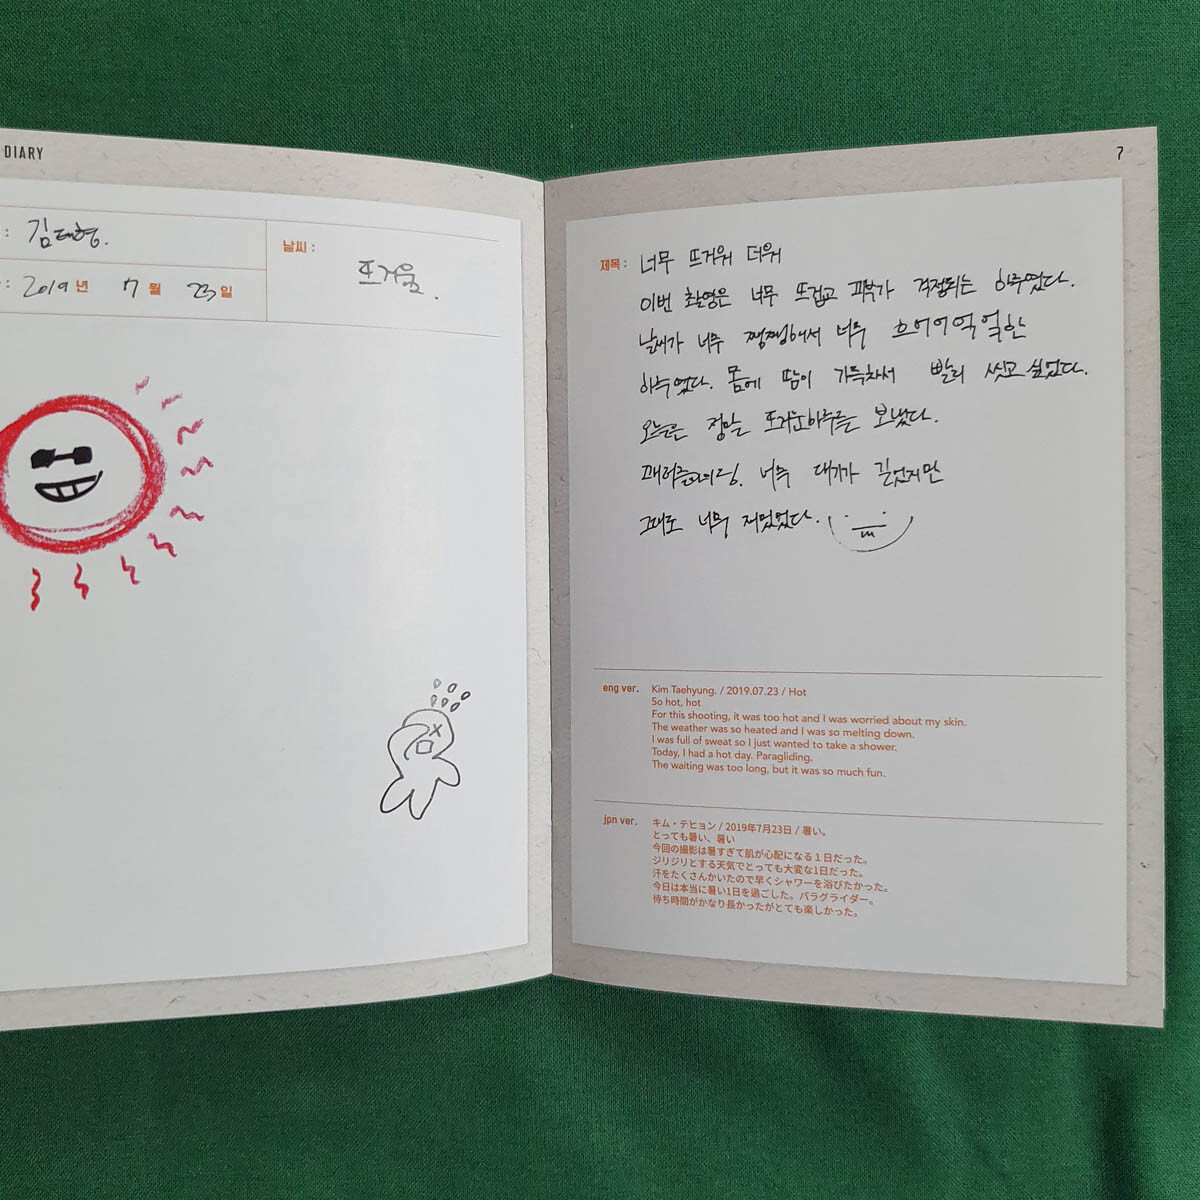 DIARY
: 김태형.
날씨 : 뜨거움.
: 2019년 7월 23일
7
제목 : 너무 뜨거워 더워
이번 촬영은 너무 뜨겁고 피부가 걱정되는 하루였다.
날씨가 너무 쨍쨍해서 너무 흐어어억억한
하루였다. 몸에 땀이 가득차서 빨리 씻고싶었다.
오늘은 정말 뜨거운하루를 보냈다.
패러글라이딩. 너무 대기가 길었지만
그래도 너무 재밌었다.
eng ver. Kim Taehyung. / 2019.07.23 / Hot
So hot, hot
For this shooting, it was too hot and I was worried about my skin.
The weather was so heated and I was so melting down.
I was full of sweat so I just wanted to take a shower.
Today, I had a hot day. Paragliding.
The waiting was too long, but it was so much fun.
jpn ver. キム・テヒョン / 2019年7月23日 / 暑い。
とっても暑い、暑い
今回の撮影は暑すぎて肌が心配になる１日だった。
ジリジリとする天気でとっても大変な1日だった。
汗をたくさんかいたので早くシャワーを浴びたかった。
今日は本当に暑い1日を過ごした。パラグライダー。
待ち時間がかなり長かったがとても楽しかった。